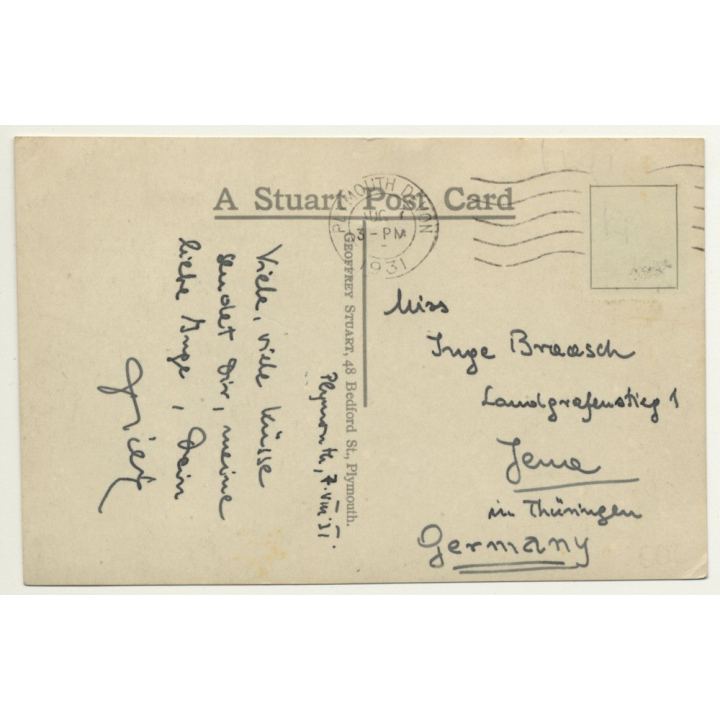 A Stuart Post Card
PLYMOUTH DEVON
3-PM
1931
GEOFFREY STUART, 48 Bedford St., Plymouth.
Plymouth, 7.VIII.31.
Viele, viele Küsse
sendet Dir, meine
liebe Inge, Dein
Miss
Inge Braasch
Landgrafenstieg 1
Jena
in Thüringen
Germany